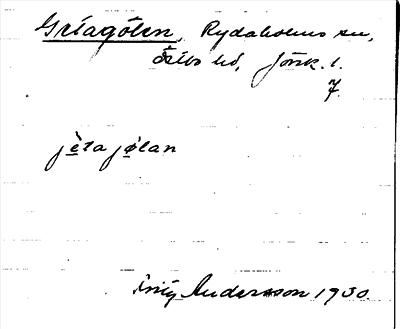 Griagölen, Rydaholms sn,
Östbo hd, Jönk. l.
7.
jèta jølan
Andersson 1930.